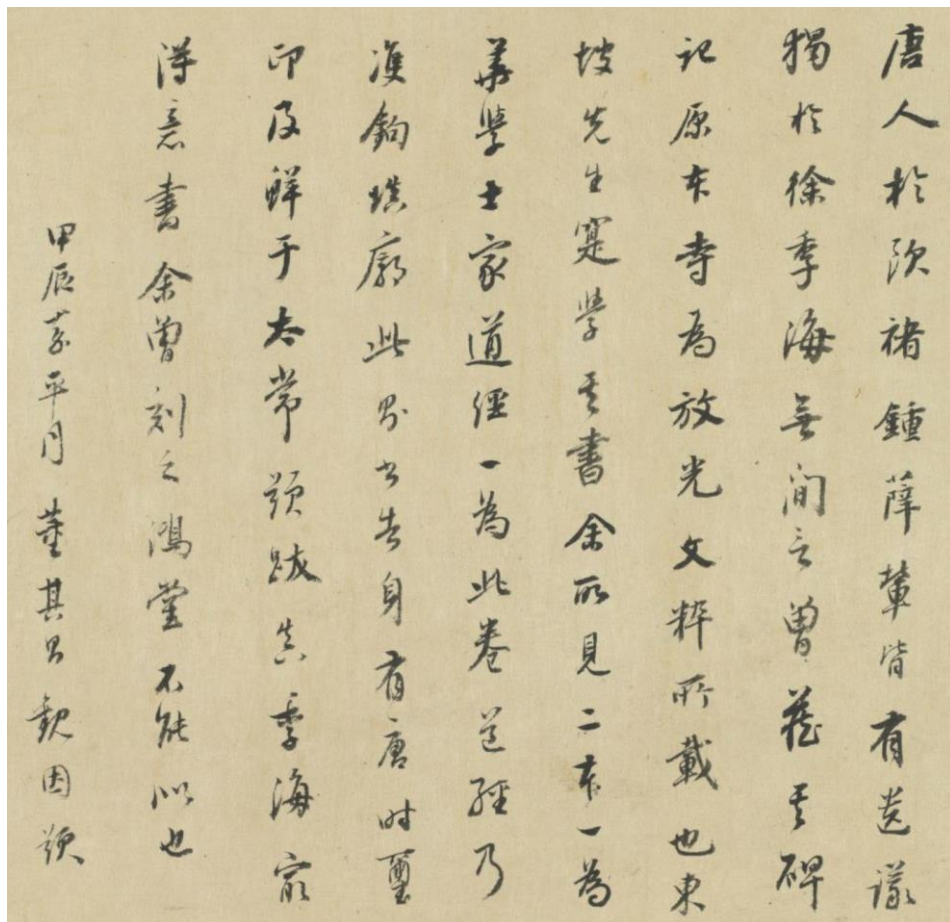 唐人於欧褚鍾薛輩皆有遺議
獨於徐季海無間言曾藏其碑
記原本寺為放光文粹所載也東
坡先生寔學其書余所見二本一為
華學士家道經一為此卷道經乃
雙鉤填廓此朱巨川告身有唐時璽
印及鮮于太常題跋真季海最
得意書余曾刻之鴻堂不能似也
甲辰嘉平月董其昌觀因題